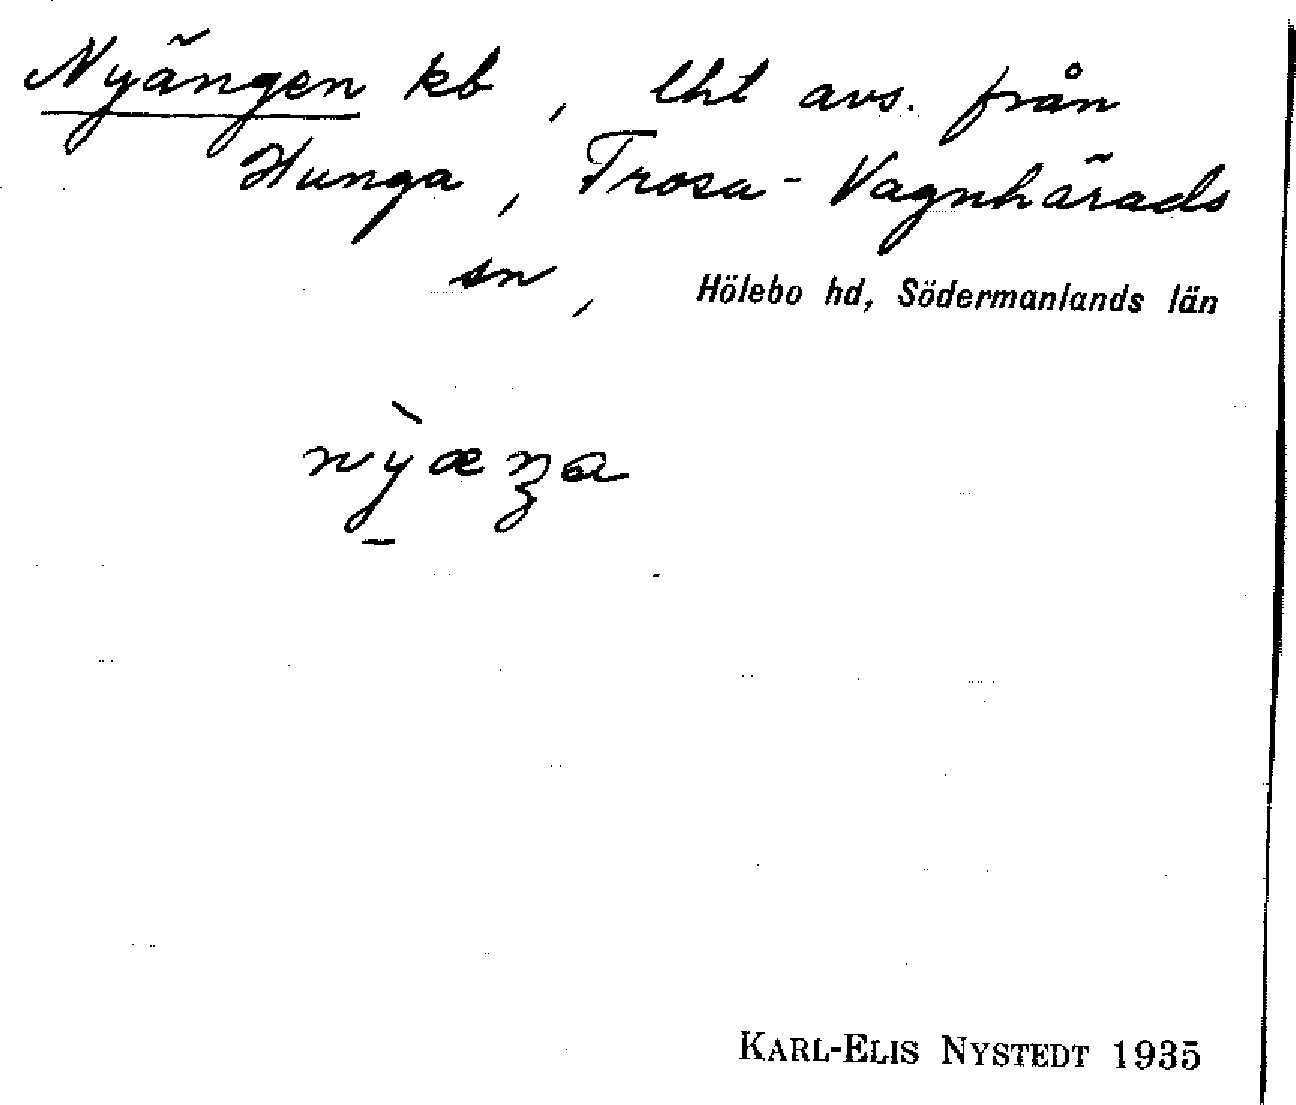 Nyängen kb, lht avs. från
Hunga, Trosa-Vagnhärads
sn, Hölebo hd, Södermanlands län
nỳ̠æŋa
KARL-ELIS NYSTEDT 1935